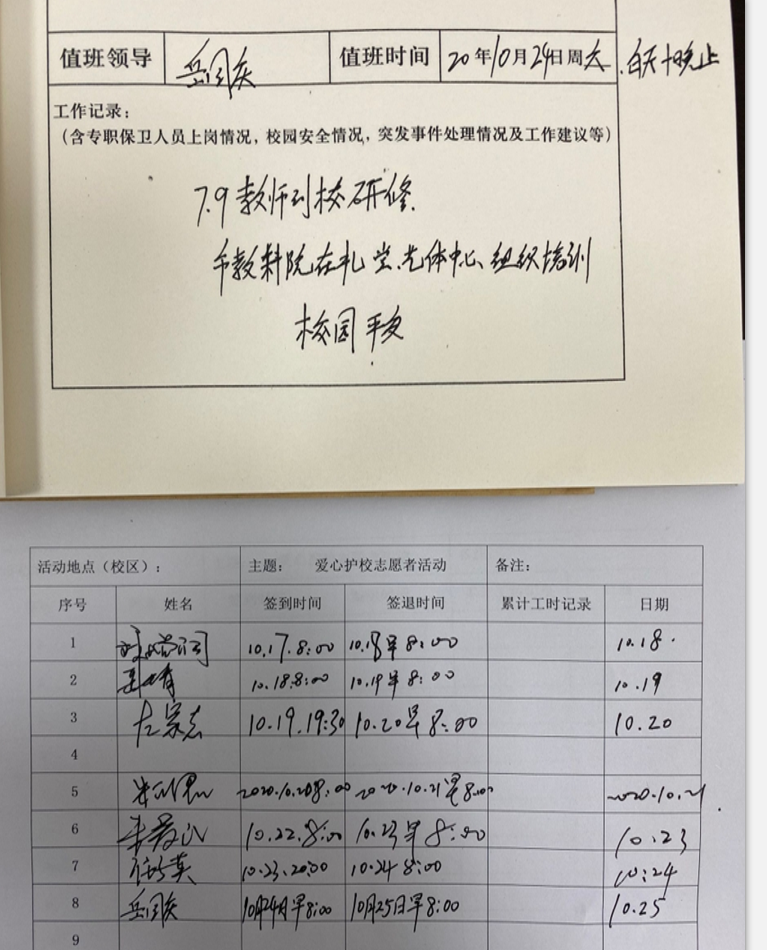 值班领导 岳国庆 值班时间 20年10月24日周六.白天+晚上
工作记录：
（含专职保卫人员上岗情况，校园安全情况，突发事件处理情况及工作建议等）
7.9 教师到校研修.
市教科院在礼堂、艺体中心组织培训
校园平安
活动地点（校区）： 主题： 爱心护校志愿者活动 备注：
序号 姓名 签到时间 签退时间 累计工时记录 日期
1 10.17.8:00 10.18早8:00 10.18.
2 10.18.8:00 10.19早8:00 10.19
3 左宗志 10.19.19:30 10.20早8:00 10.20
4
5 2020.10.20 8:00 2020.10.21早8:00 2020.10.21
6 10.22.8:00 10.23早8:00 10.23
7 10.23.20:00 10.24 8:00 10.24
8 岳国庆 10月24日早8:00 10月25日早8:00 10.25
9